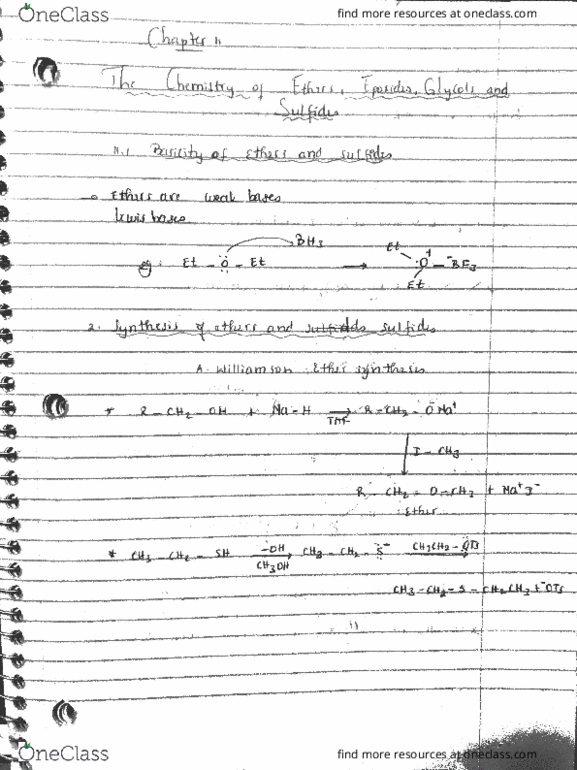 OneClass find more resources at oneclass.com
Chapter 11
The Chemistry of Ethers, Epoxides, Glycols and
Sulfides
11.1 Basicity of ethers and sulfides
Ethers are weak bases
lewis bases
BH3
Et
eg: Et - Ö - Et → :O+ - -BF3
Et
2. Synthesis of ethers and sulfides
A. Williamson Ether synthesis
* R - CH2 - OH + Na - H → R - CH2 - O Na+
THF
I - CH3
R - CH2 - O - CH3 + Na+ I-
Ether
* CH3 - CH2 - SH -OH → CH3 - CH2 - S- CH3CH2 - OTs →
CH3OH
CH3 - CH2 - S - CH2CH3 + -OTs
OneClass find more resources at oneclass.com